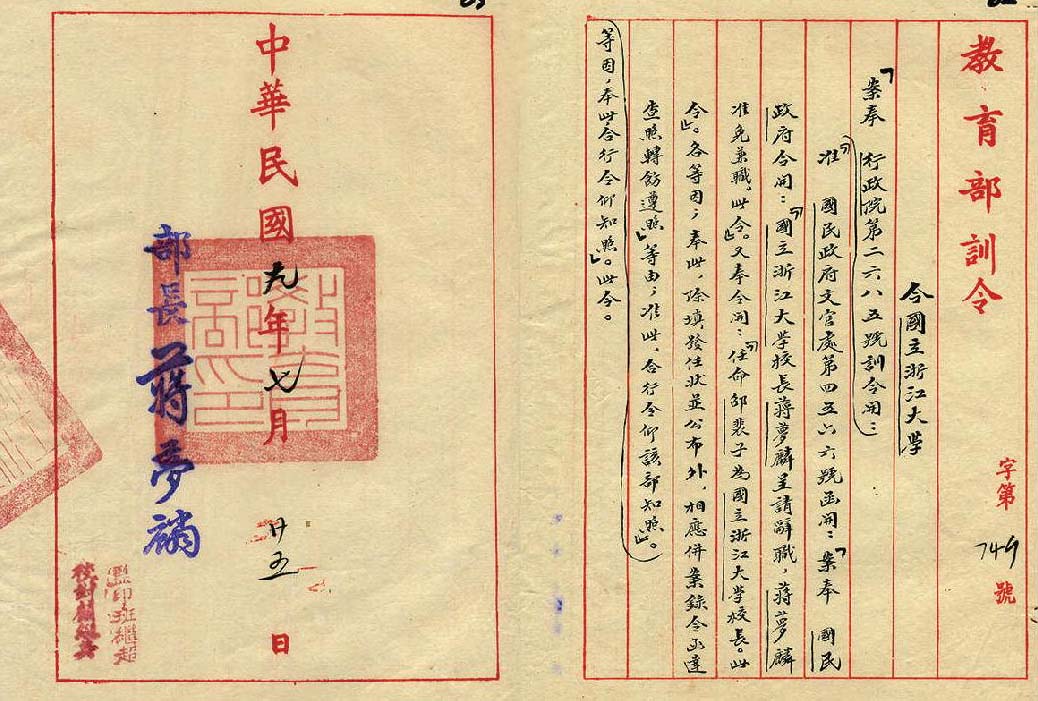 教育部訓令
字第 749 號
令國立浙江大学
「案奉 行政院第二六八五號訓令開：
「准 國民政府文官處第四五六六號函開：「案奉 國民
政府令開：「國立浙江大学校長蔣夢麟呈請辭職，蔣夢麟
准免兼職。此令」。又奉令開：「任命邵裴子為國立浙江大学校長。此
令」。各等因；奉此，除填發任狀並公布外，相應併案錄令函達
查照轉飭遵照」等由；准此，合行令仰該部知照」。
等因，奉此合行令仰知照」。此令。
中華民國九年七月廿五日
部長蔣夢麟
監印班繼超
校對